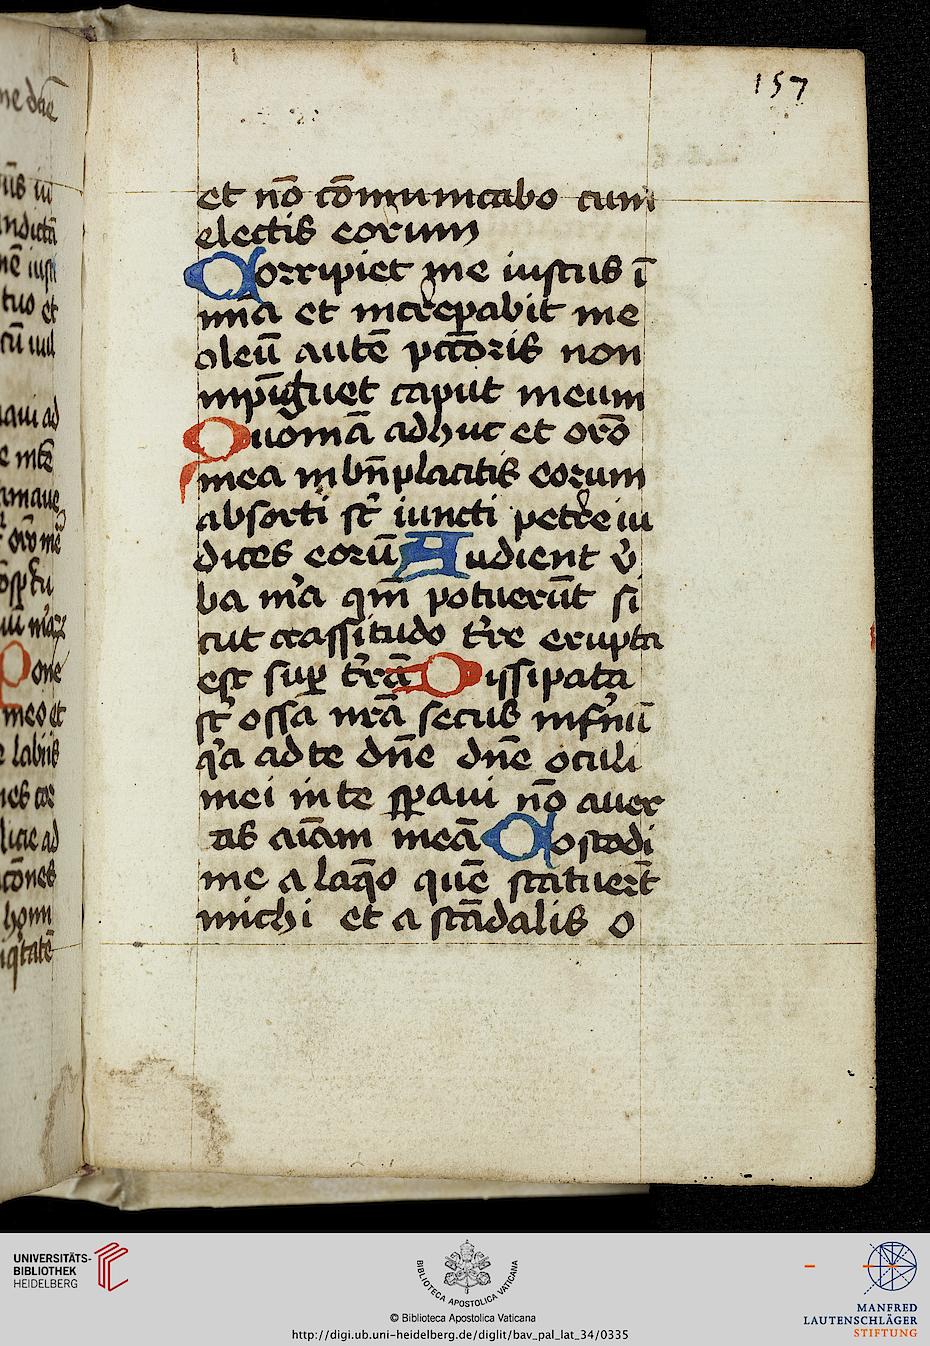 157
et nō cōmunicabo cum
electis eorum
Corripiet me iustus ī
mīa et increpabit me
oleū autē pctōris non
inpīguet caput meum
Quomā adhuc et orō
mea in bn̄placitis eorum
absorti st̄ iuncti petre iu
dices eorū Audient v̄
ba m̄a qm̄ potuerūt si
cut crassitudo t̄re erupta
est sup̄ t̄rā Dissipata
st̄ ossa nr̄a secus infn̄ū
q̄a ad te dn̄e dn̄e oculi
mei in te spaui nō aufer
as aīam meā Costodi
me a laq̄o quē statuer̄t
michi et a scādalis o
UNIVERSITÄTS-
BIBLIOTHEK
HEIDELBERG
BIBLIOTECA APOSTOLICA VATICANA
© Biblioteca Apostolica Vaticana
http://digi.ub.uni-heidelberg.de/diglit/bav_pal_lat_34/0335
MANFRED
LAUTENSCHLÄGER
STIFTUNG